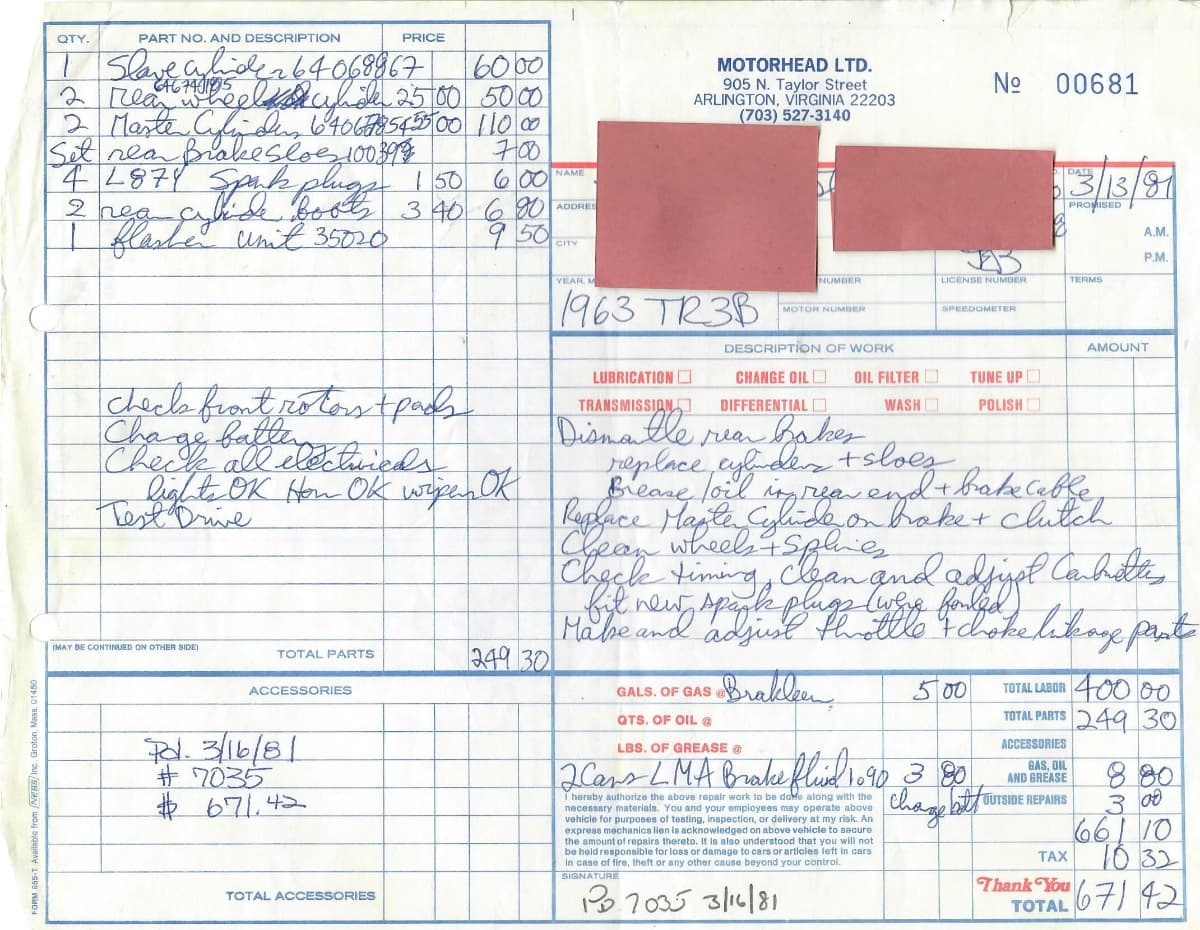 QTY. PART NO. AND DESCRIPTION PRICE
1 Slave cylinder 64068867 60 00
64674195
2 rear wheel cylinder 25 00 50 00
2 Master Cylinders 55 00 110 00
Set rear Brake Sloes 7 00
4 L87Y Spark plugs 1 50 6 00
2 rear cylinder boots 3 40 6 80
1 flasher unit 35020 9 50
check front rotors + pads
Charge battery
Check all electricals
lights OK Horn OK wipers OK
Test Drive
(MAY BE CONTINUED ON OTHER SIDE) TOTAL PARTS 249 30
ACCESSORIES
Pd. 3/16/81
# 7035
$ 671.42
TOTAL ACCESSORIES
FORM 685-T Available from NEBS Inc. Groton, Mass. 01450
MOTORHEAD LTD.
905 N. Taylor Street
ARLINGTON, VIRGINIA 22203
(703) 527-3140
No 00681
NAME DATE
3/13/81
ADDRES PROMISED
A.M.
CITY
P.M.
YEAR, M NUMBER LICENSE NUMBER TERMS
1963 TR3B MOTOR NUMBER SPEEDOMETER
DESCRIPTION OF WORK AMOUNT
LUBRICATION CHANGE OIL OIL FILTER TUNE UP
TRANSMISSION DIFFERENTIAL WASH POLISH
Dismantle rear brakes
replace cylinders + sloes
Grease/oil in rear end + brake cable
Replace Master Cylinder on brake + clutch
Clean wheels + Splines
Check timing, clean and adjust Carburettes
fit new spark plugs (were fouled)
Make and adjust throttle + choke linkage parts
GALS. OF GAS @ Brakleen 5 00 TOTAL LABOR 400 00
QTS. OF OIL @ TOTAL PARTS 249 30
LBS. OF GREASE @ ACCESSORIES
2 Cans LMA Brake fluid 1.90 3 80 GAS, OIL AND GREASE 8 80
charge batt OUTSIDE REPAIRS 3 00
661 10
TAX 10 32
Thank You
TOTAL 671 42
I hereby authorize the above repair work to be done along with the
necessary materials. You and your employees may operate above
vehicle for purposes of testing, inspection, or delivery at my risk. An
express mechanics lien is acknowledged on above vehicle to secure
the amount of repairs thereto. It is also understood that you will not
be held responsible for loss or damage to cars or articles left in cars
in case of fire, theft or any other cause beyond your control.
SIGNATURE
PD 7035 3/16/81